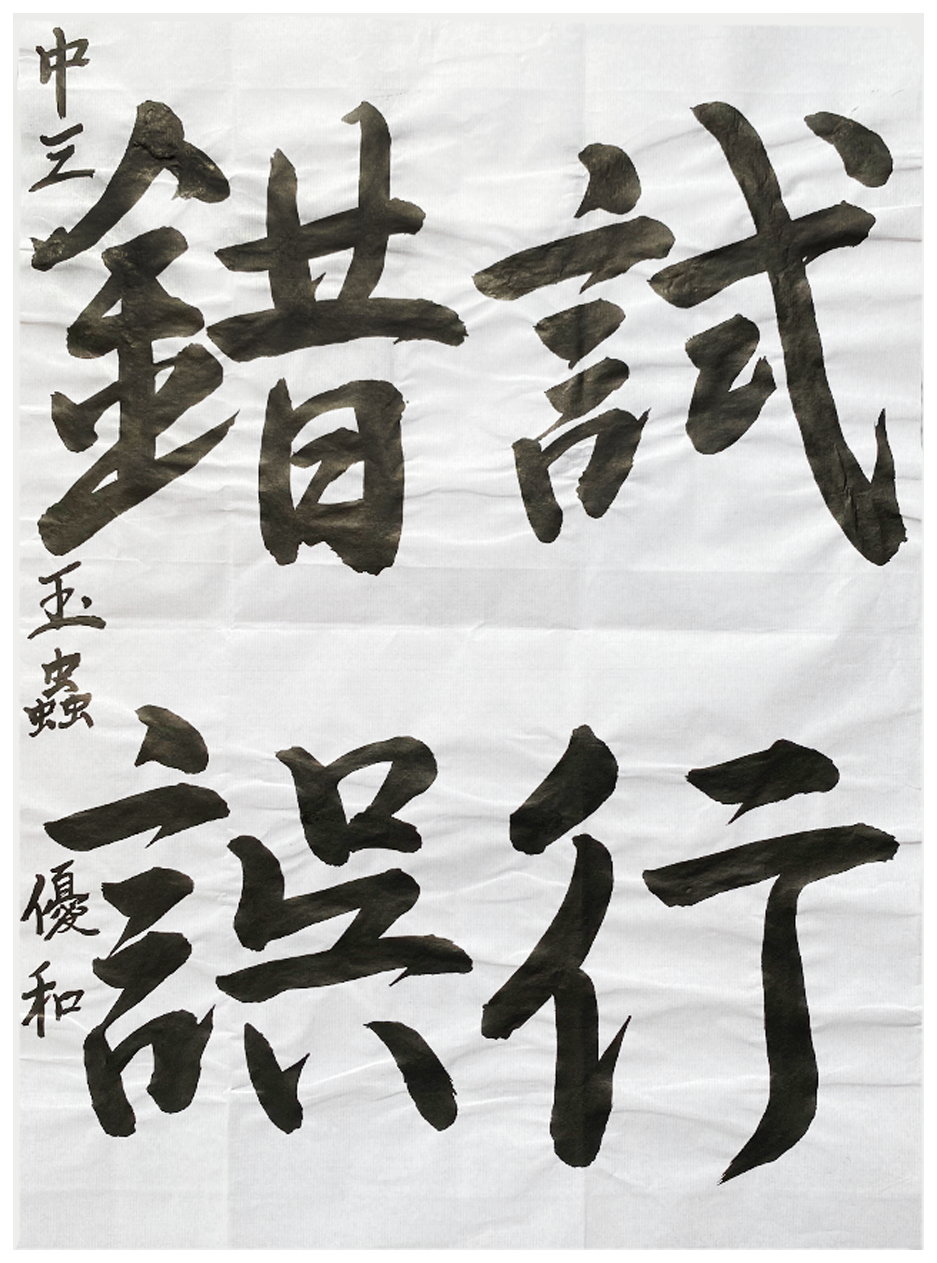 試行
錯誤
中三 玉蟲 優和